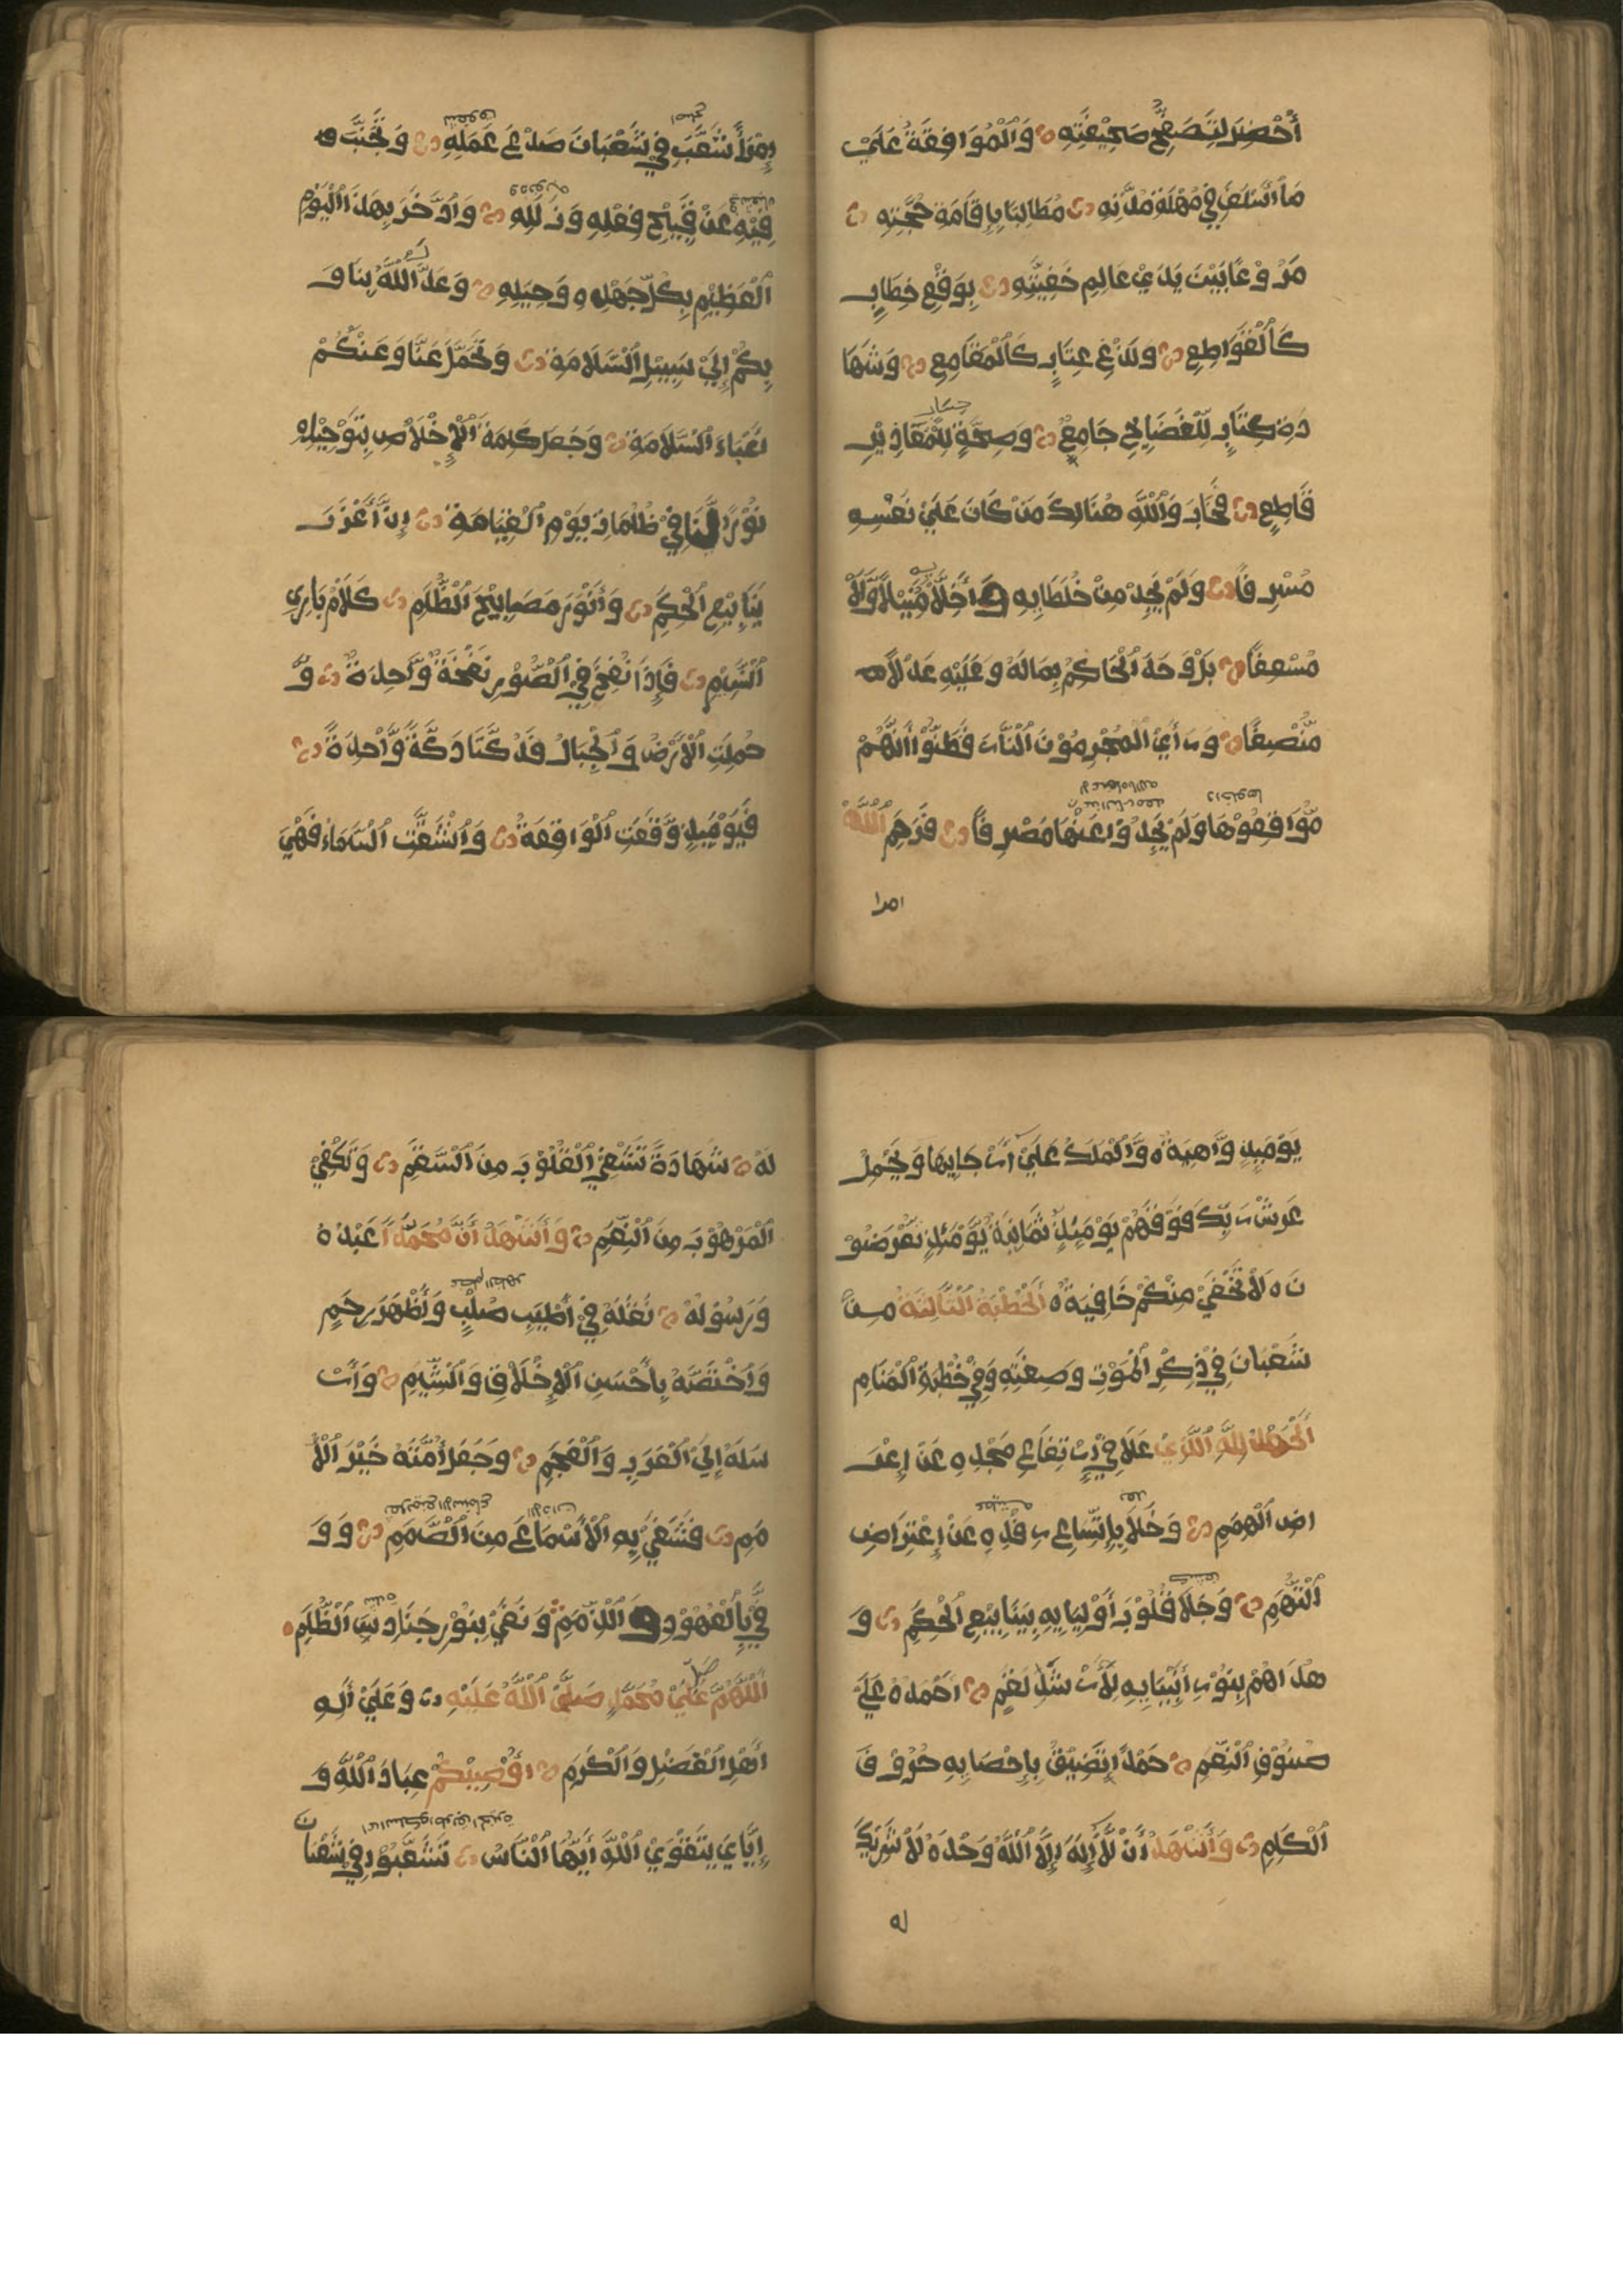 أُحْضِرَ لِتَصَفُّحِ صَحِيْفَتِهِ وَالْمُوَافَقَةَ عَلَيْ
مَا أَسْلَفَ فِيْ مُهْلَةِ مُدَّتِهِ مُطَالِبًا بِإِقَامَةِ حُجَّتِهِ
مَرْوْعًا بَيْنَ يَدَيْ عَالِمِ خَفِيَّتِهِ بِوَقْعِ خِطَابٍ
كَالْقَوَاطِعِ وَلَدْغِ عِتَابٍ كَالْمَقَامِعِ وَشَهَا
دَةِ كِتَابٍ لِلْفَضَايِحِ جَامِعٍ وَصِحَّةٍ لِلْمَعَاذِيْرِ
قَاطِعٍ فَخَابَ وَاللّٰهِ هُنَالِكَ مَنْ كَانَ عَلَيْ نَفْسِهِ
مُسْرِفًا وَلَمْ يَجِدْ مِنْ خُلَطَايِهِ وَلَا
مُسْعِفًا بَلْ وَجَدَ الْحَاكِمُ بِمَالَهُ وَعَلَيْهِ عَدْلًا
مُّنْصِفًا وَرَأَيَ الْمُجْرِمُوْنَ النَّارَ فَظَنُّوْا أَنَّهُمْ
مُّوَاقِعُوْهَا وَلَمْ يَجِدُوْا عَنْهَا مَصْرِفًا فَرَحِمَ اللّٰهُ
امرا
إِمْرَأً تَشَعَّبَ فِيْ شَعْبَانَ صَدْعَ عَمَلِهِ وَتَجَنَّبَ
فِيْهِ عَنْ قَبِيْحِ فِعْلِهِ وَزَلَلِهِ وَادَّخَرَ بِهٰذَا الْيَوْمِ
الْعَظِيْمِ بِكُلِّ جَهْدِهِ وَحِيَلِهِ وَعَدَلَ اللّٰهُ بِنَا وَ
بِكُمْ إِلَيْ سَبِيْلِ السَّلَامَةِ وَتَحَمَّلَ عَنَّا وَعَنْكُمْ
وَجَعَلَ كَلِمَةَ الْإِخْلَاصِ بِتَوْحِيْدِهِ
نُوْرًا لَّنَا فِيْ ظُلُمَاتِ يَوْمِ الْقِيَامَةِ إِنَّ أَعْذَبَ
يَنَابِيْعِ الْحِكَمِ وَأَنْوَرَ مَصَابِيْحِ الظُّلَمِ كَلَامُ بَارِئِ
النَّسَمِ فَإِذَا نُفِخَ فِي الصُّوْرِ نَفْخَةٌ وَّاحِدَةٌ وَّ
حُمِلَتِ الْأَرْضُ وَالْجِبَالُ فَدُكَّتَا دَكَّةً وَّاحِدَةً
فَيَوْمَئِذٍ وَّقَعَتِ الْوَاقِعَةُ وَانْشَقَّتِ السَّمَاءُ فَهِيَ
يَوْمَئِذٍ وَّاهِيَةٌ وَّالْمَلَكُ عَلَيْ أَرْجَايِهَا وَيَحْمِلُ
عَرْشَ رَبِّكَ فَوْقَهُمْ يَوْمَئِذٍ ثَمَانِيَةٌ يَوْمَئِذٍ تُعْرَضُوْ
نَ لَا تَخْفَيْ مِنْكُمْ خَافِيَةٌ الْخُطْبَةُ الثَّالِثَةُ مِنْ
شَعْبَانَ فِيْ ذِكْرِ الْمَوْتِ وَصِفَتِهِ وَفِيْ خُطْبَةِ الْمَنَامِ
اَلْحَمْدُ لِلّٰهِ الَّذِيْ عَلَا فِيْ ارْتِفَاعِ مَجْدِهِ عَنْ إِعْرَ
اضِ الْهِمَمِ وَخَلَا بِاِتِّسَاعِ رِفْدِهِ عَنْ إِعْتِرَاضِ
التُّهَمِ وَجَلَا قُلُوْبَ أَوْلِيَايِهِ بِيَنَابِيْعِ الْحِكَمِ وَ
هَدَاهُمْ بِنُوْرِ أَنْبِيَايِهِ لِأَرْشَدِ لَقَمٍ أَحْمَدُهُ عَلَيْ
صُنُوْفِ النِّعَمِ حَمْدًا تَضِيْقُ بِإِحْصَايِهِ حُرُوْفَ
الْكَلِمِ وَأَشْهَدُ أَنْ لَّا إِلٰهَ إِلَّا اللّٰهُ وَحْدَهُ لَا شَرِيْكَ
له
لَهُ شَهَادَةً تَشْفِي الْقُلُوْبَ مِنَ السَّقَمِ وَتَكْفِيْ
الْمَرْهُوْبَ مِنَ النِّقَمِ وَأَشْهَدُ أَنَّ مُحَمَّدًا عَبْدُهُ
وَرَسُوْلُهُ نَقَلَهُ فِيْ أَطْيَبِ صُلْبٍ وَأَطْهَرَ رِحِمٍ
وَاخْتَصَّهُ بِأَحْسَنِ الْإِخْلَاقِ وَالشِّيَمِ وَأَرْ
سَلَهُ إِلَيْ الْعَرَبِ وَالْعَجَمِ وَجَعَلَ أُمَّتَهُ خَيْرَ الْأُ
مَمِ فَشَفَيْ بِهِ الْأَسْمَاعَ مِنَ الصَّمَمِ وَوَ
فَّيْ بِالْعُهُوْدِ وَالذِّمَمِ وَنَفَيْ بِنُوْرِ حَنَادِسَ الظُّلَمِ
اَللّٰهُمَّ صَلِّ عَلَيْ مُحَمَّدٍ صَلَّي اللّٰهُ عَلَيْهِ وَعَلَيْ أٰلِهِ
أَهْلِ الْفَضْلِ وَالْكَرَمِ أُوْصِيْكُمْ عِبَادَ اللّٰهِ وَ
إِيَّايَ بِتَقْوَيْ اللّٰهِ أَيُّهَا النَّاسُ تَشَعَّبُوْا فِيْ شَعْبَا
ن